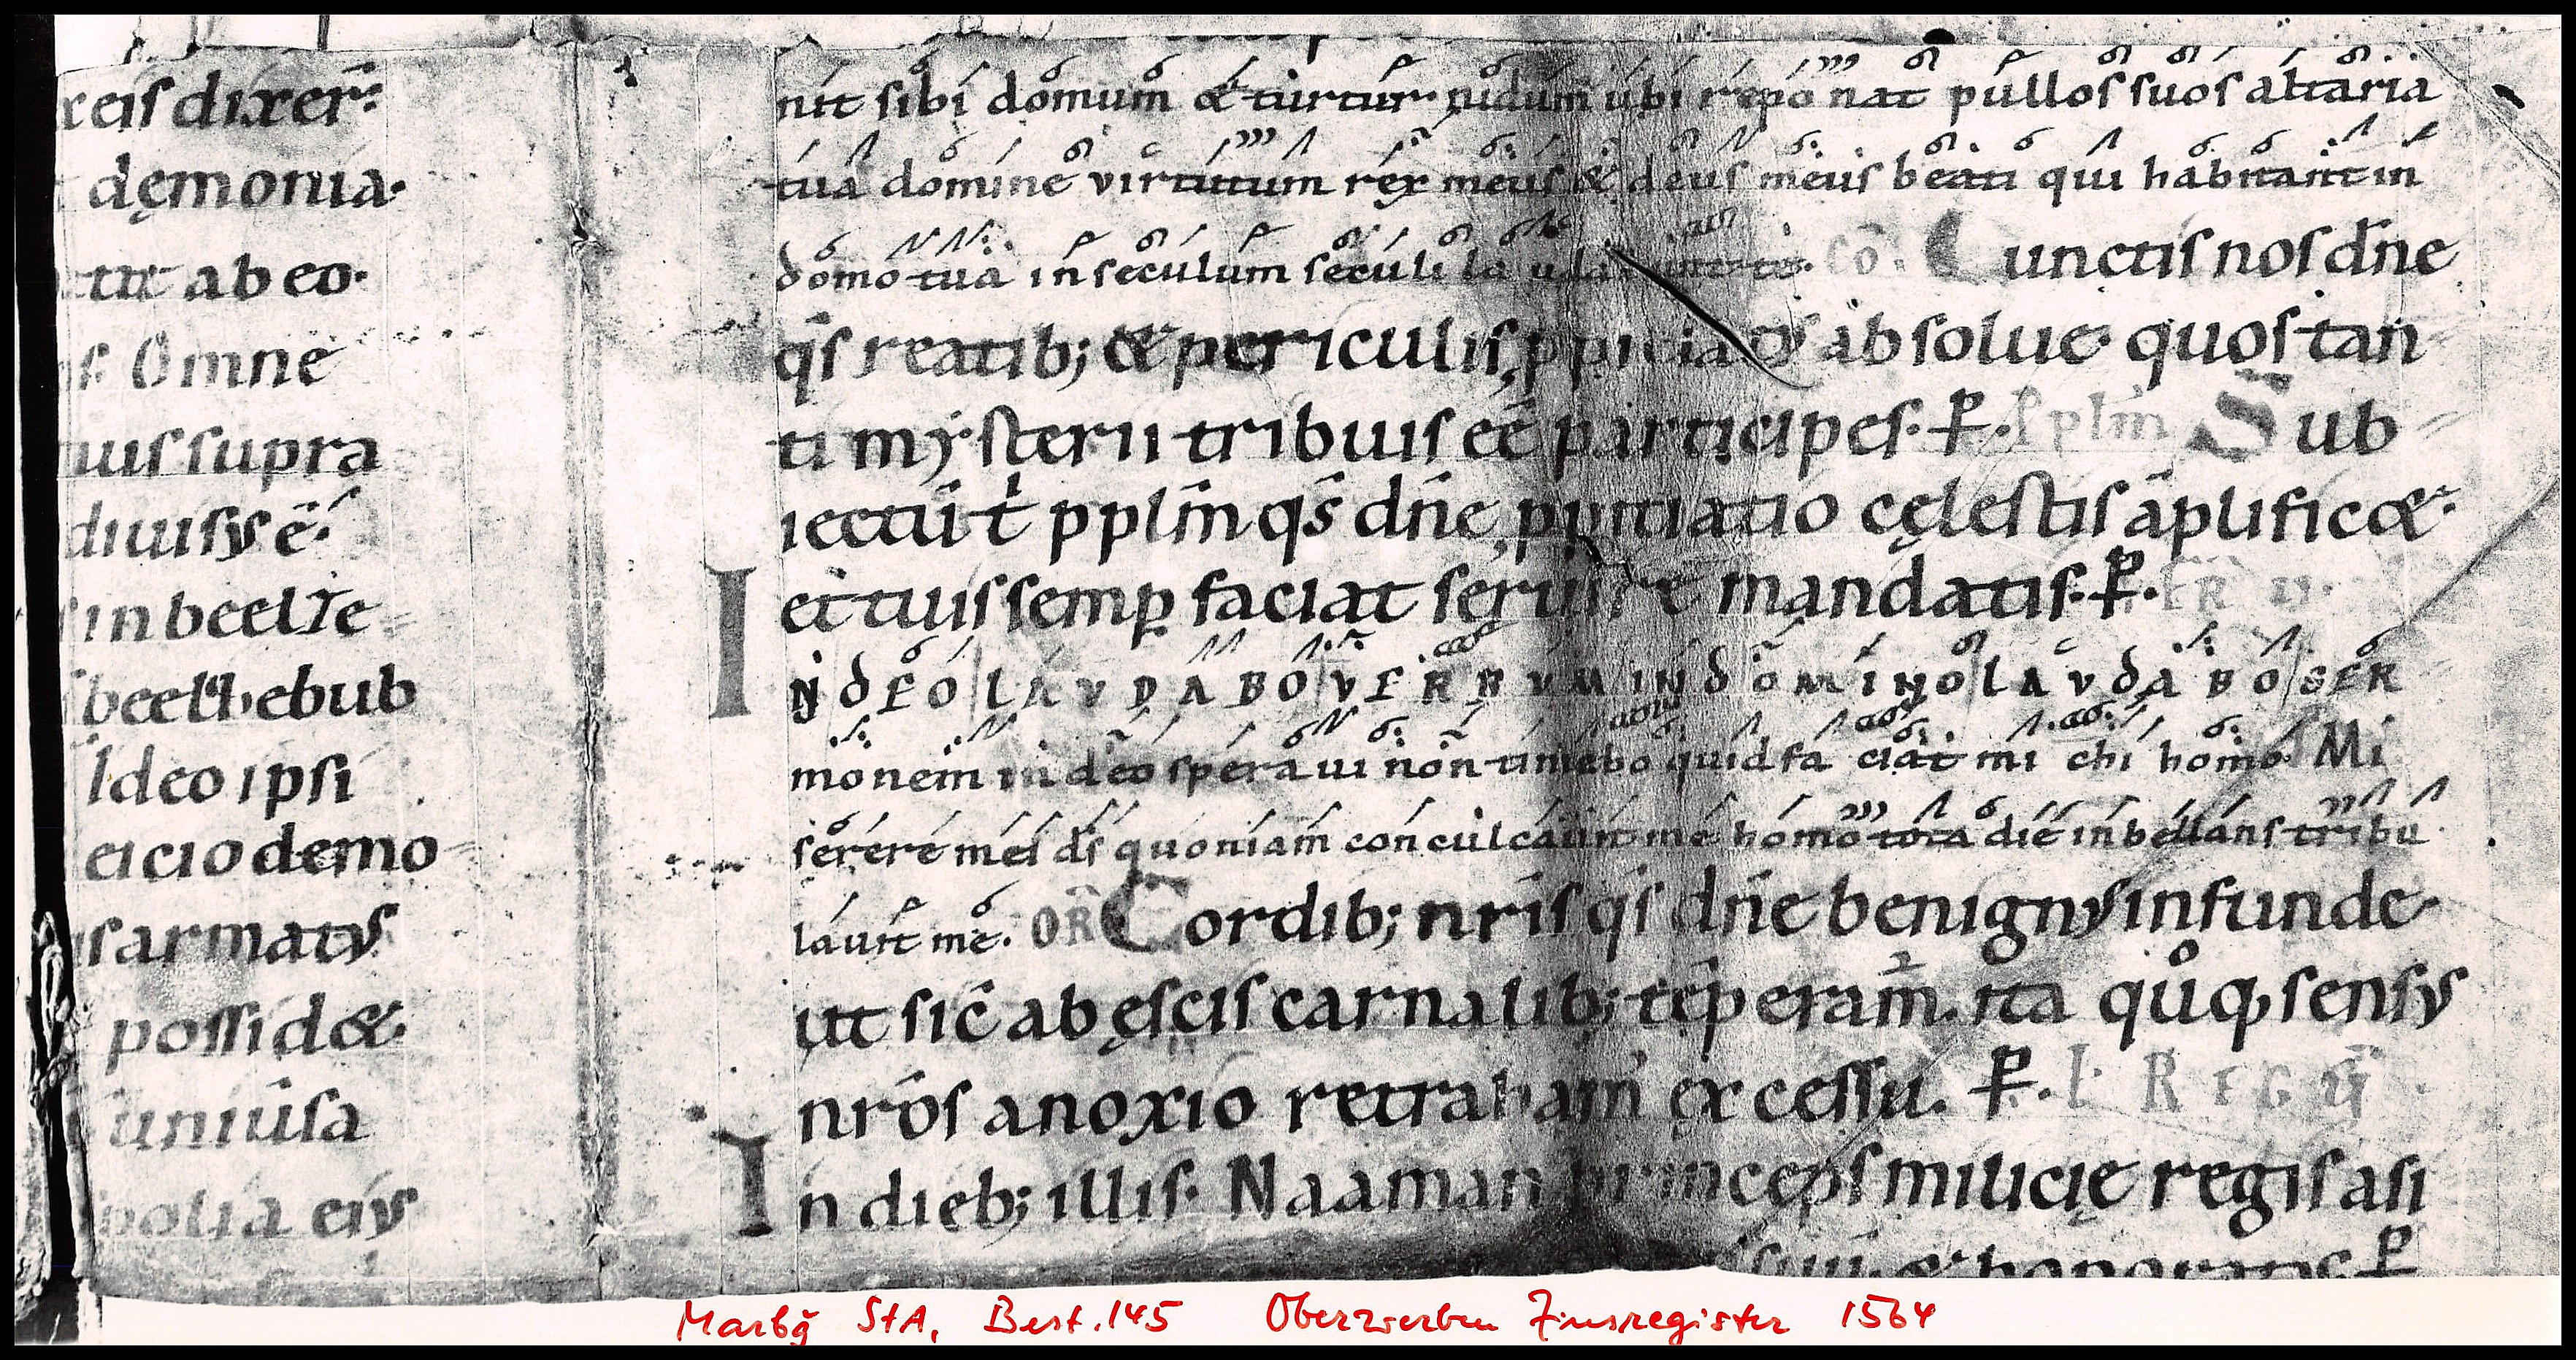 xeis dixer̄:
dęmonia.
tur ab eo.
s. Omne
uis supra
diuisus ē.
in beelze
beelzebub
Ideo ipsi
eicio demo
s armatus
possidet
uniuersa
spolia eius
nit sibi domum & turtur nidum ubi repo nat pullos suos altaria
tua domine virtutum rex meus & deus meus beati qui habitant in
domo tua in seculum seculi la uda bunt te. Cō. Cunctis nos dn̄e
qs̄ reatib; & periculis, ppicia t' absolue. quos tan
ti mysterii tribuis eē participes. P. S pplm̄ Sub
iectū t' pplm̄ qs̄ dn̄e, ppitiatio cęlestis āplificet.
et tuis semp faciat seruire mandatis. P. FER II.
IN DEO LAVDABO VERBVM IN DOMINO LAVDABO SER
monem in deo spera ui non timebo quid fa ciat mi chi homo. Mi
serere mei ds̄ quoniam conculcauit me homo tota die inbellans tribu
lauit me. OR Cordib; nr̄is qs̄ dn̄e benignus infunde.
ut sic̄ ab ęscis carnalib; tēperam̄. ita qͦq, sensus
nr̄os a noxio retraham̄ excessu. P. L REGŪ
In dieb; illis. Naaman princeps milicię regis asi
& honoratus
Marbg StA, Best. 145 Oberzwerben Zinsregister 1564